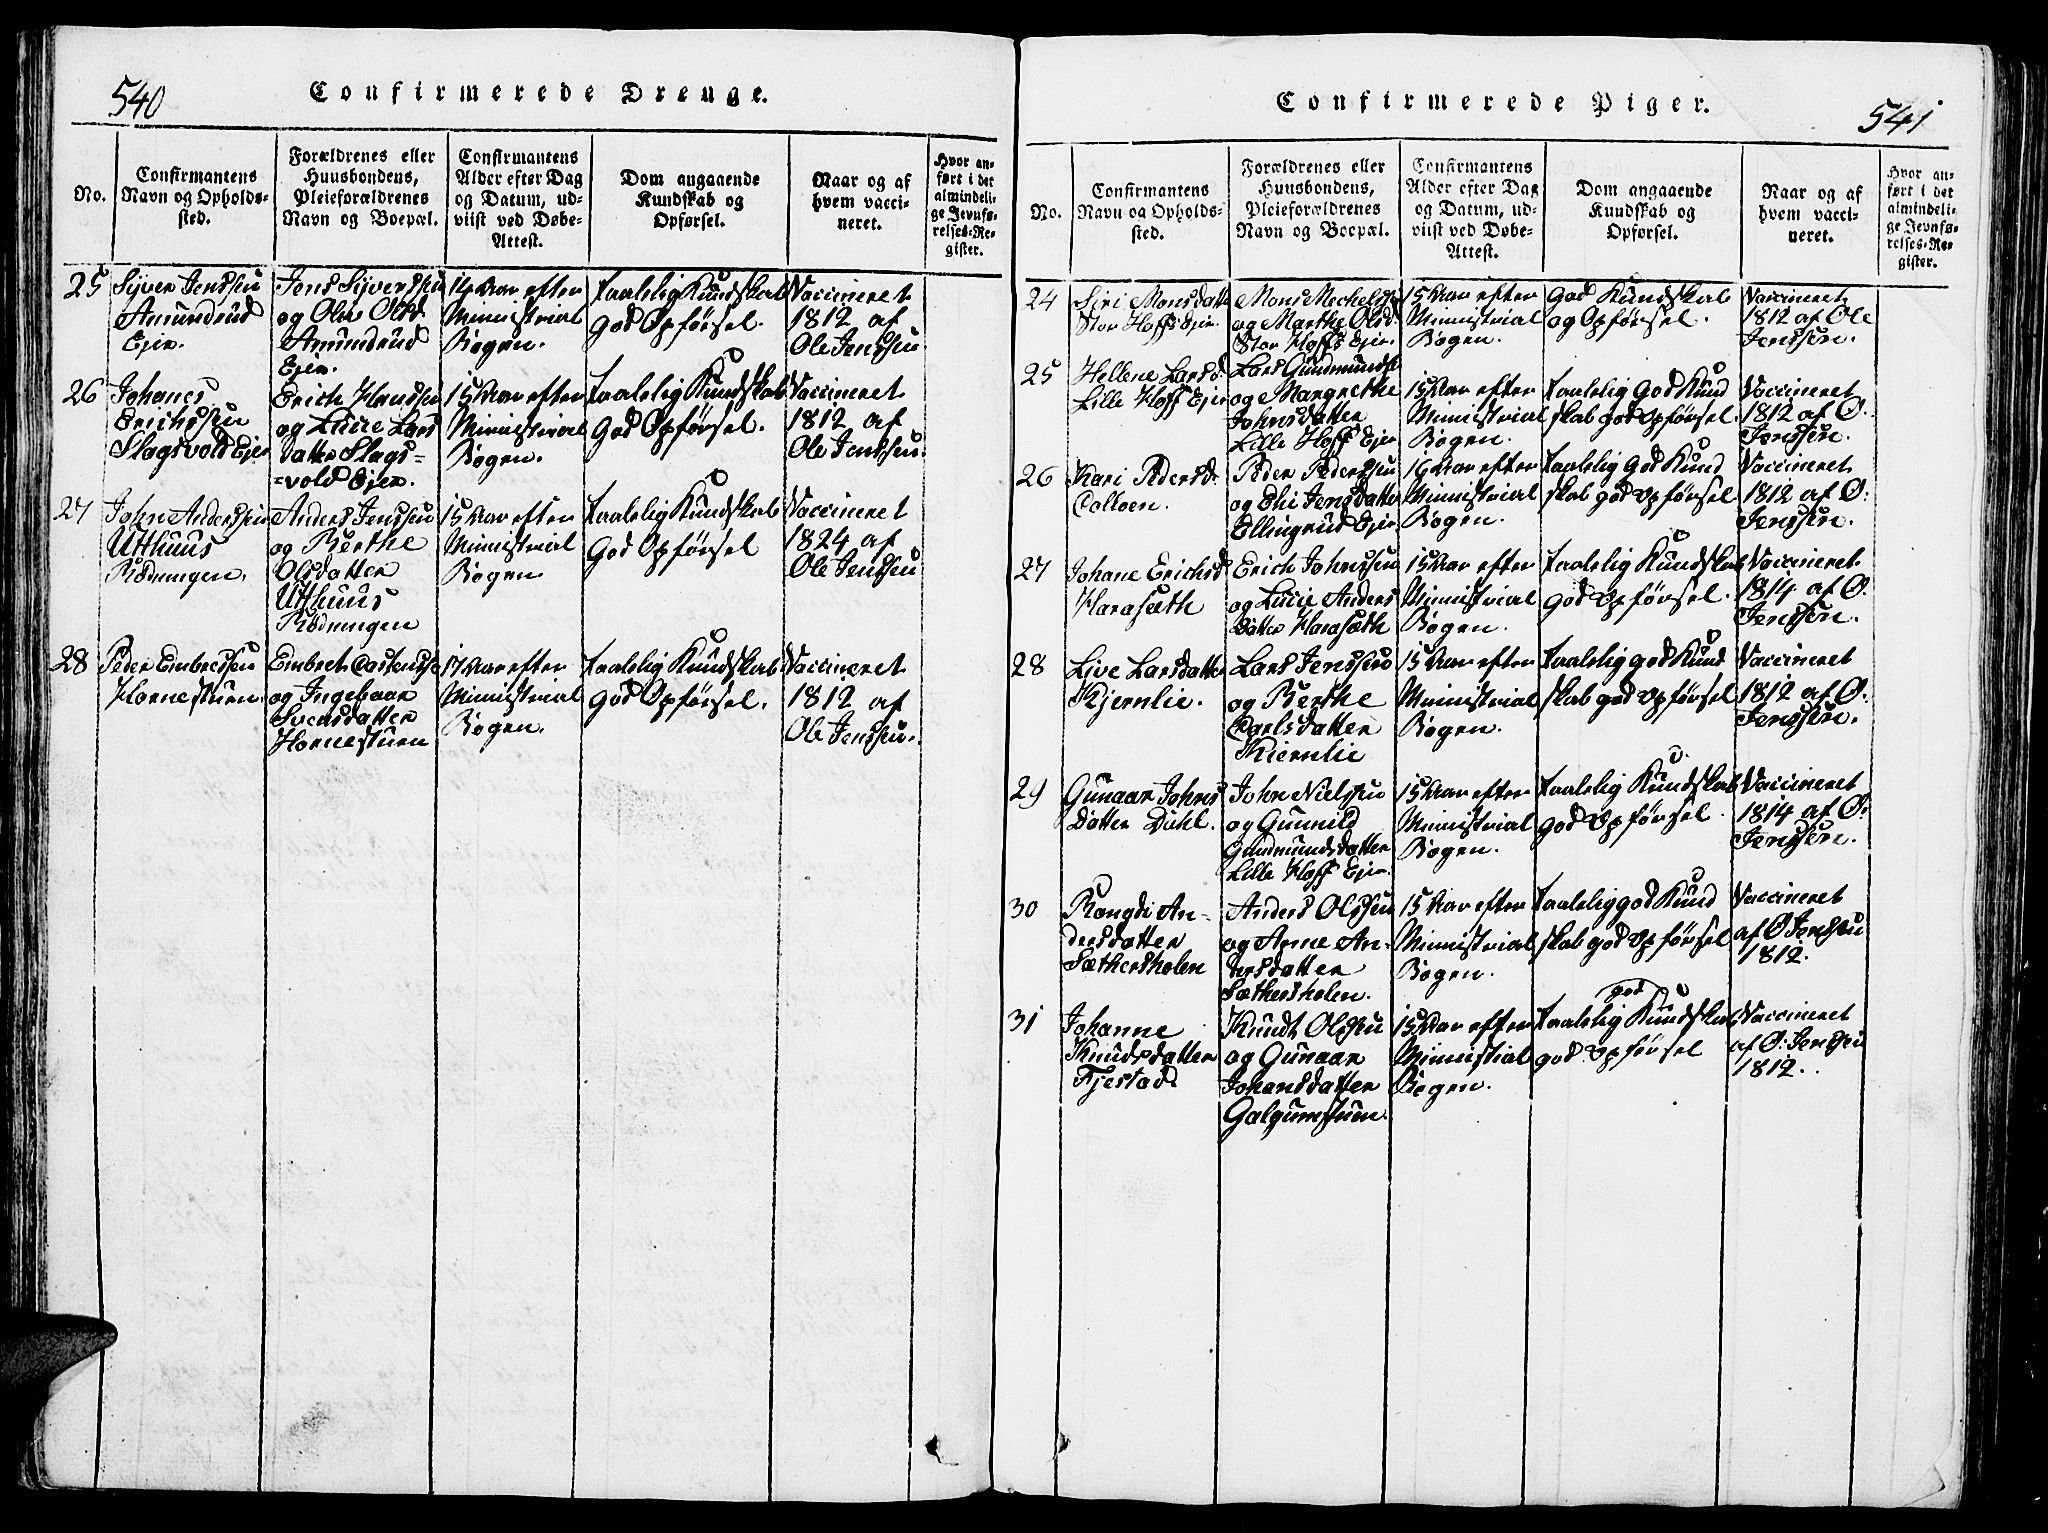 540
Confirmerede Drenge.
No.
Confirmantens
Navn og Opholds-
sted.
Forældrenes eller
Huusbondens,
Pleieforældrenes
Navn og Boepæl.
Confirmantens
Alder efter Dag
og Datum, ud-
viist ved Døbe-
Attest.
Dom angaaende
Kundskab og
Opførsel.
Naar og af
hvem vacci-
neret.
Hvor an-
ført i det
almindeli-
ge Jevnfø-
relses-Re-
gister.
25
Syver Jenssen
Amundrud
Ejer.
Jens Syverssen
og Olea Olsd
Amundrud
Ejer.
14 Aar efter
Ministrial
Bogen.
taalelig Kundskab
God Opførsel.
Vaccineret
1812 af
Ole Jenssen
26
Johanes
Erichssen
Slagsvold Ejer
Erich Hanssen
og Lucie Lars
datter Slags=
=vold Ejer.
15 Aar efter
Ministrial
Bogen.
taalelig Kundskab
God Opførsel.
Vaccineret
1812 af
Ole Jenssen.
27
John Anderssen
Utthuus
Rødningen.
Anders Jenssen
og Berthe
Olsdatter
Utthuus
Rødningen
15 Aar efter
Ministrial
Bogen
taalelig Kundskab
God Opførsel
Vaccineret
1824 af
Ole Jenssen
28
Peder Embretsen
Hornestuen.
Embret Castensen
og Ingebaar
Svensdatter
Hornestuen
17 Aar efter
Ministrial
Bogen.
taalelig Kundskab
God Opførsel.
Vaccineret
1812 af
Ole Jenssen.
541
Confirmerede Piger.
No.
Confirmantens
Navn og Opholds-
sted.
Forældrenes eller
Huusbondens,
Pleieforældrenes
Navn og Boepæl.
Confirmantens
Alder efter Dag
og Datum, ud-
viist ved Døbe-
Attest.
Dom angaaende
Kundskab og
Opførsel.
Naar og af
hvem vacci-
neret.
Hvor an-
ført i det
almindeli-
ge Jevnfø-
relses-Re-
gister.
24
Siri Monsdatter
Stor Hoffs Ejer.
Mons Mechelsen
og Marthe Olsd.
Stor Hoffs Ejer.
15 Aar efter
Ministrial
Bogen.
God Kundskab
og Opførsel.
Vaccineret
1812 af Ole
Jenssen.
25
Hellene Larsd.
Lille Hoff Ejer
Lars Gundmunds
og Margrethe
Johnsdatter
Lille Hoff Ejer
15 Aar efter
Ministrial
Bogen.
taalelig God Kund
skab god Opførsel
Vaccineret
1812 af O:
Jenssen.
26
Kari Pedersd.
Colloen.
Peder Pederssen
og Eli Jensdatter
Ellingrud Ejer
16 Aar efter
Ministrial
Bogen.
taalelig God Kund
skab god Opførsel
Vaccineret
1812 af O:
Jenssen.
27
Johane Erichsd
Harasæth
Erich Johnssen
og Lucie Anders
datter Harasæth
15 Aar efter
Ministrial
Bogen.
taalelig Kundskab
God Opførsel.
Vaccineret
1814 af O:
Jenssen.
28
Live Larsdatter
Kjernlie.
Lars Jenssen
og Berthe
Carlsdatter
Kiernlie
15 Aar efter
Ministrial
Bogen.
taalelig god Kund
skab god Opførsel
Vaccineret
1812 af O:
Jenssen.
29
Gunaar Johns
datter Dahl.
John Nielssen
og Gunnild
Gundmundsdatter
Lille Hoff Ejer.
15 Aar efter
Ministrial
Bogen.
taalelig Kundskab
god Opførsel.
Vaccineret
1814 af O:
Jenssen.
30
Rangdi An-
dersdatter
Sætersholen
Anders Olssen
og Anne An-
dersdatter
Sætersholen.
15 Aar efter
Ministrial
Bogen.
taalelig god Kund
skab god Opførsel
Vaccineret
af O Jenssen
1812.
31
Johanne
Knudsdatter
Fjestad
Knudt Olssen
og Gunaar
Johansdatter
Galgumstuen.
15 Aar efter
Ministial
Bogen.
god
taalelig Kundskab
god Opførsel
Vaccineret
af O: Jenssen
1812.